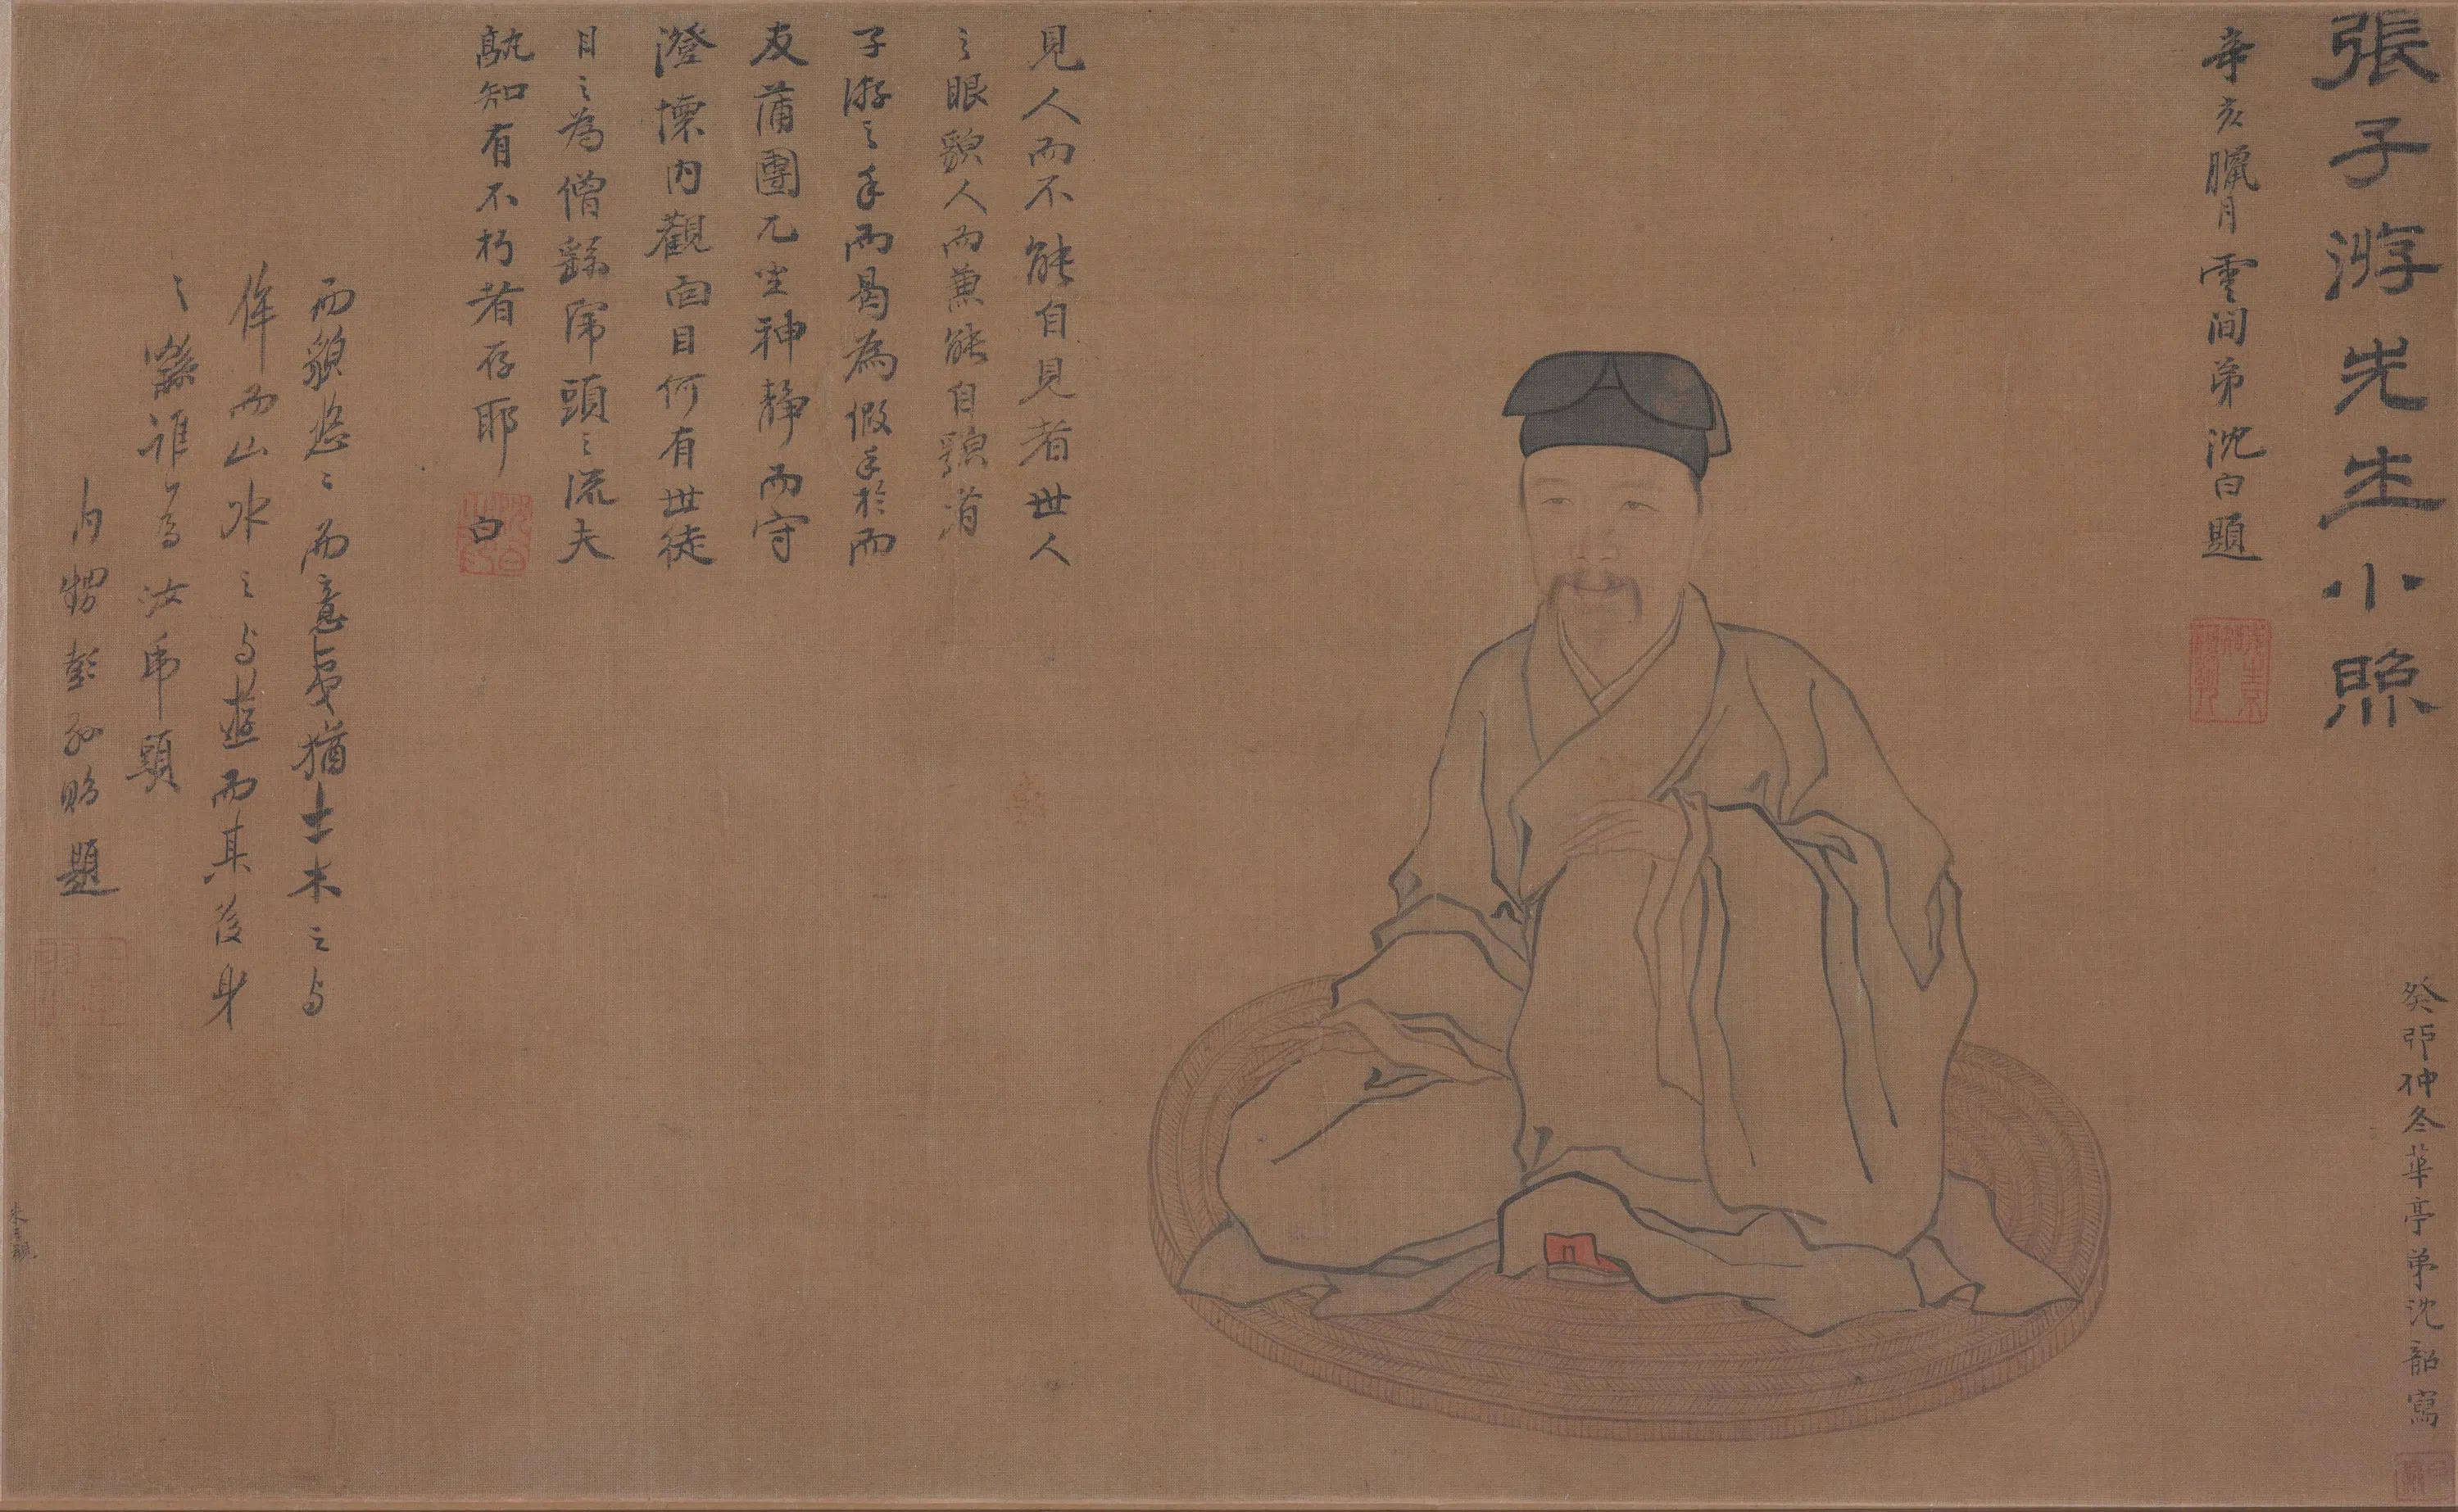 張子游先生小照
辛亥臘月雲间弟沈白題
癸卯仲冬華亭弟沈韶寫
見人而不能自見者世人
之眼貌人而兼能自貌者
子游之手而曷為假手於而
友蒲團兀坐神靜而守
澄懷内觀面目何有世徒
目之為僧繇席頭之流夫
孰知有不朽者存耶
白
沈白
而貌悠悠而意與猶土木之与
侔而山水之与遊而其後身
之繇誰為汝席頭
内甥彭孫貽題